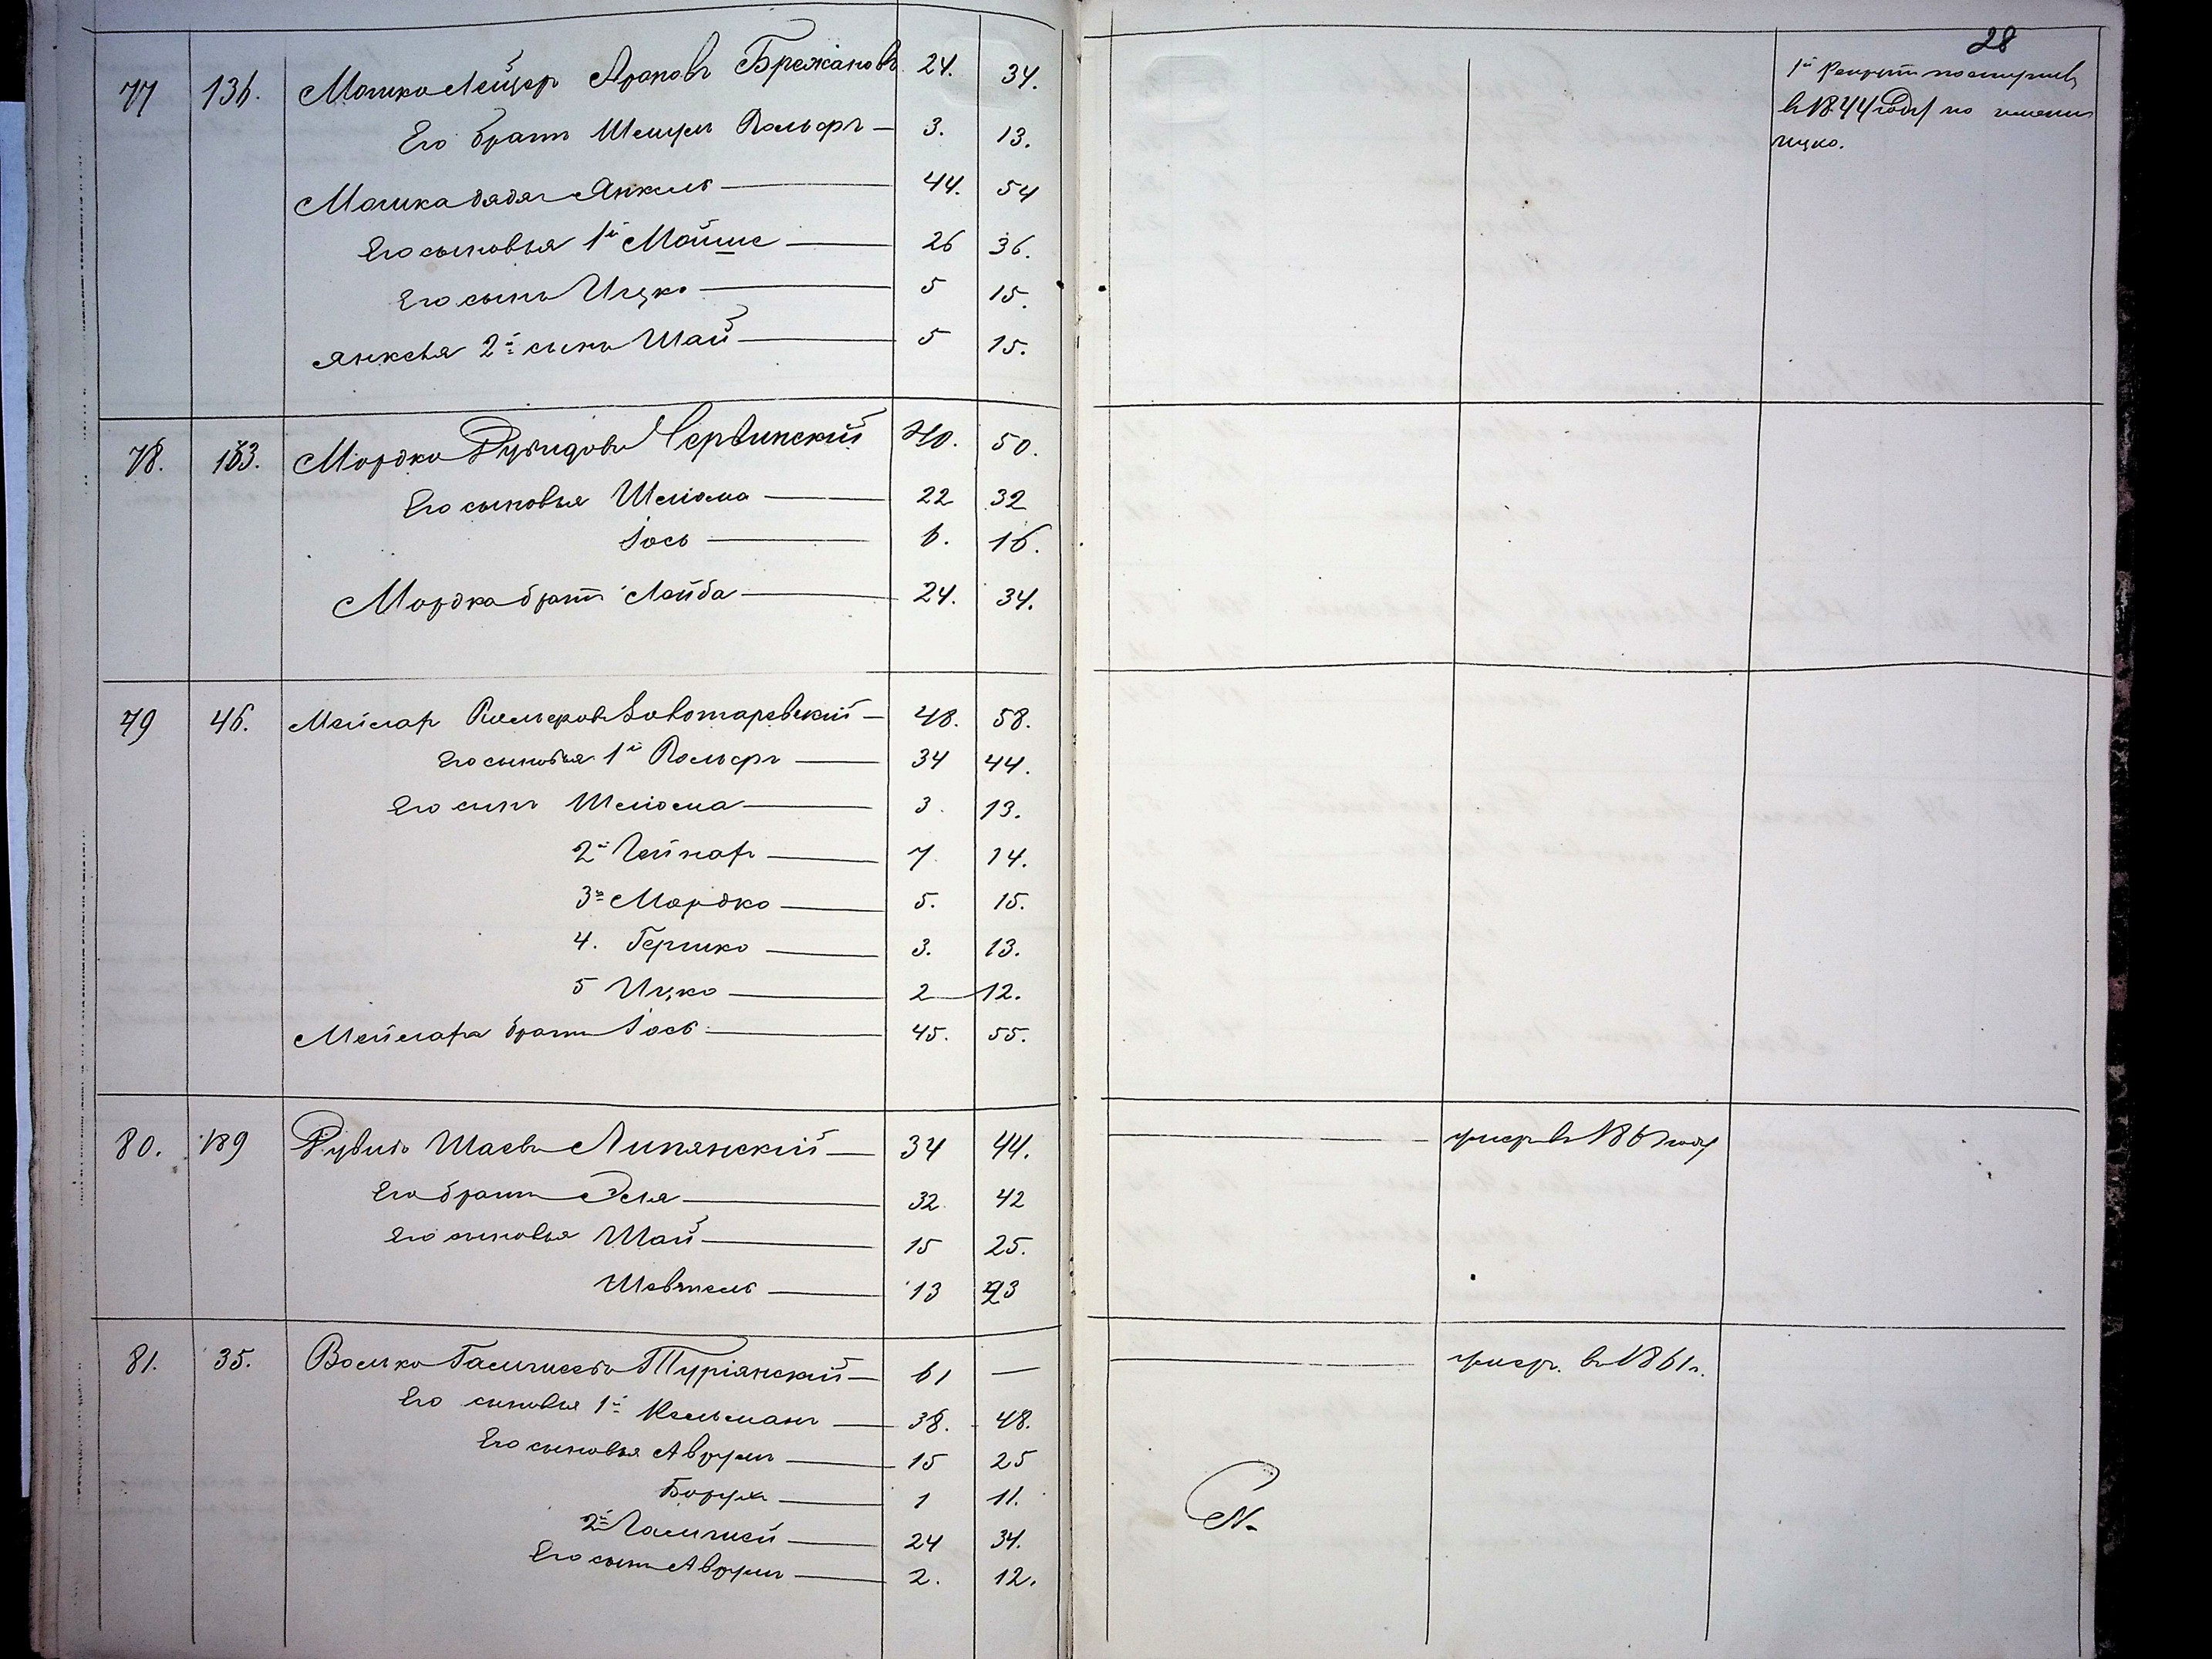 28
77 136. Мошко Лейзер Ароновъ Брежановъ 24. 34.
1й рекрутъ
въ 1844 году по имени
Ицко.
Его братъ Вольфъ — 3. 13.
Мошка дядя Янкель — 44. 54
Его сыновья 1й Мойше — 26 36.
Его сынъ Ицко — 5 15.
Янкеля 2й сынъ Шай — 5 15.
78. 153. Мордко Червинскій 40. 50.
Его сыновья Шліома — 22 32
Іось — 6. 16.
Мордка братъ Лейба — 24. 34.
79 46. Мейлахъ Вольфовъ — 48. 58.
Его сыновья 1й Вольфъ — 34 44.
Его сынъ Шліома — 3. 13.
2й — 7 14.
3й Мордко — 5. 15.
4. Гершко — 3. 13.
5 Ицко — 2 12.
Мейлаха братъ Іось — 45. 55.
80. 189 Рувинъ Шаевъ Липянскій — 34 44. — въ 186 году
Его братъ Эля — 32 42
Его сыновья Шай — 15 25.
Шевтель — 13 23
81. 35. Волько Туріянскій — 61 — — въ 1861 г.
Его сыновья 1й Кельманъ — 38. 48.
Его сыновья Аврумъ — 15 25
Борухъ — 1 11.
2й — 24 34.
Его сынъ Аврумъ — 2. 12.